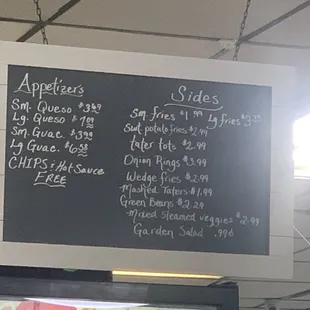 Appetizer's
Sm. Queso $3.69
Lg. Queso $7.09
Sm. Guac. $3.99
Lg Guac. $6.58
CHIPS & Hot Sauce
FREE
Sides
Sm fries $1.99 Lg fries
Swt potato fries $2.99
tater tots $2.99
Onion Rings $3.99
Wedge fries $2.99
Mashed Taters $1.99
Green Beans $2.29
Mixed Steamed veggies $2.99
Garden Salad .99¢